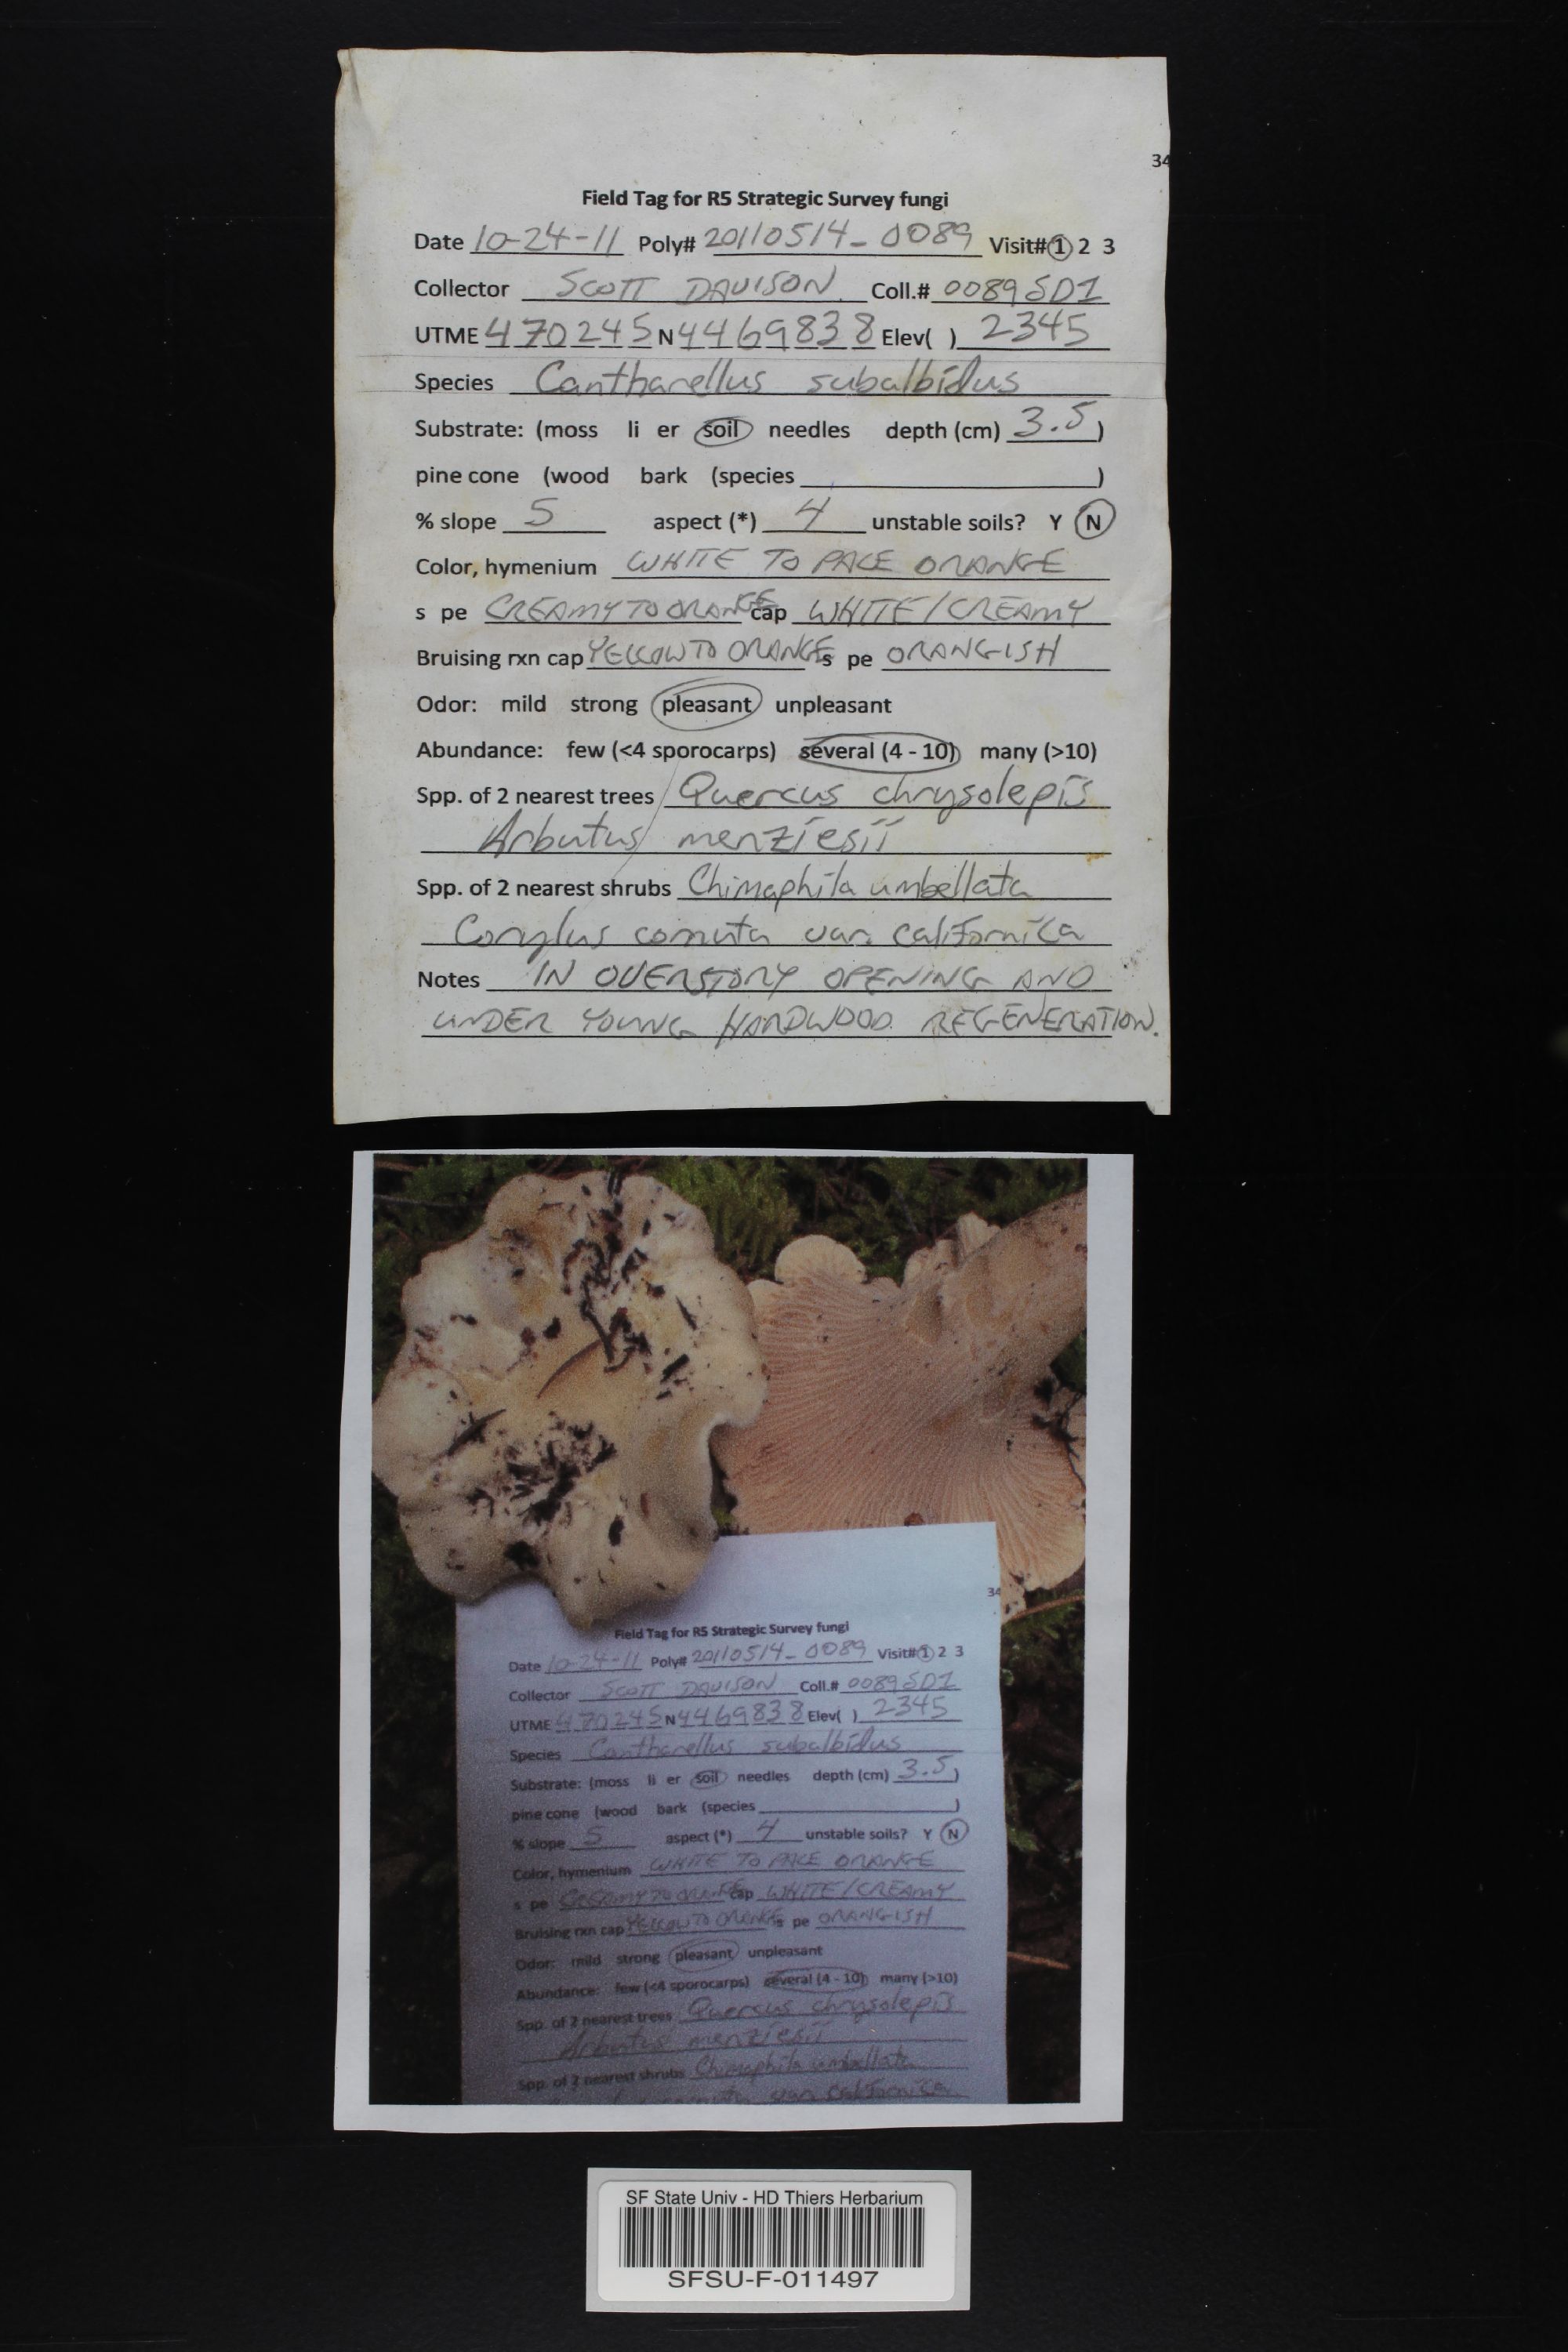 34
Field Tag for R5 Strategic Survey fungi
Date 10-24-11 Poly# 20110514-0089 Visit# 1 2 3
Collector SCOTT DAVISON Coll.# 0089SD1
UTME 470245 N 4469838 Elev( ) 2345
Species Cantharellus subalbidus
Substrate: (moss li er soil needles depth (cm) 3.5 )
pine cone (wood bark (species )
% slope 5 aspect (*) 4 unstable soils? Y N
Color, hymenium WHITE TO PALE ORANGE
s pe CREAMY TO ORANGE cap WHITE/CREAMY
Bruising rxn cap YELLOW TO ORANGE s pe ORANGISH
Odor: mild strong pleasant unpleasant
Abundance: few (<4 sporocarps) several (4 - 10) many (>10)
Spp. of 2 nearest trees Quercus chrysolepis
Arbutus menziesii
Spp. of 2 nearest shrubs Chimaphila umbellata
Corylus cornuta var. californica
Notes IN OVERSTORY OPENING AND
UNDER YOUNG HARDWOOD REGENERATION.
34
Field Tag for R5 Strategic Survey fungi
Date 10-24-11 Poly# 20110514-0089 Visit# 1 2 3
Collector SCOTT DAVISON Coll.# 0089SD1
UTME 470245 N 4469838 Elev( ) 2345
Species Cantharellus subalbidus
Substrate: (moss li er soil needles depth (cm) 3.5 )
pine cone (wood bark (species )
% slope 5 aspect (*) 4 unstable soils? Y N
Color, hymenium WHITE TO PALE ORANGE
s pe CREAMY TO ORANGE cap WHITE/CREAMY
Bruising rxn cap YELLOW TO ORANGE s pe ORANGISH
Odor: mild strong pleasant unpleasant
Abundance: few (<4 sporocarps) several (4 - 10) many (>10)
Spp. of 2 nearest trees Quercus chrysolepis
Arbutus menziesii
Spp. of 2 nearest shrubs Chimaphila umbellata
var californica
SF State Univ - HD Thiers Herbarium
SFSU-F-011497